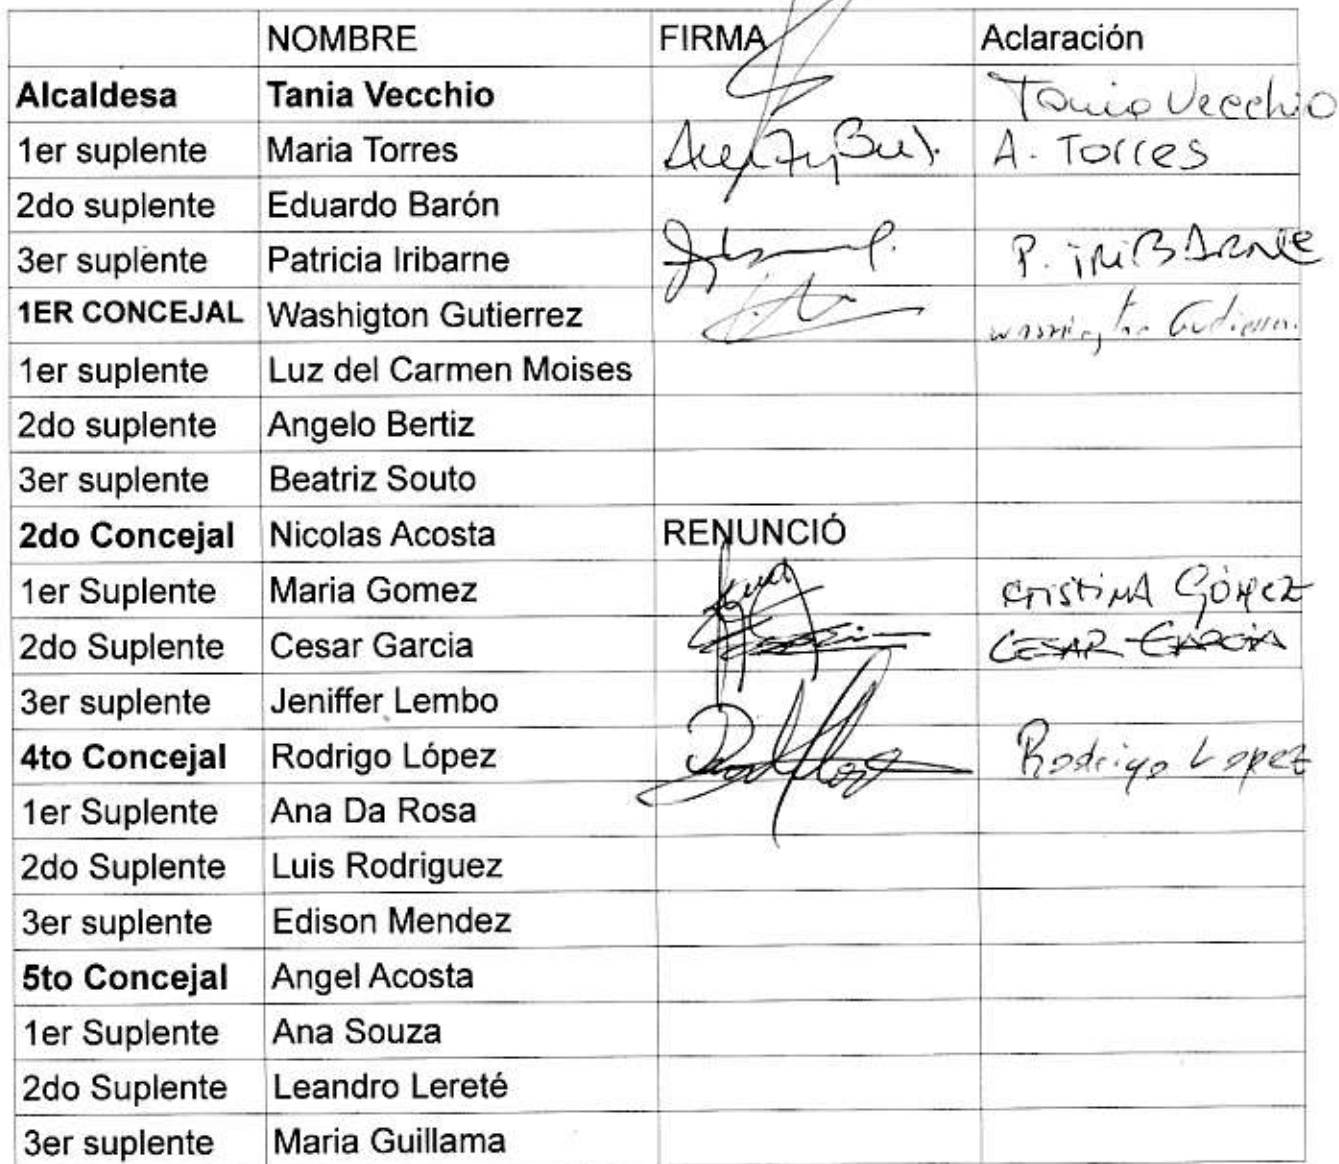 NOMBRE FIRMA Aclaración
Alcaldesa Tania Vecchio Tania Vecchio
1er suplente Maria Torres A. Torres
2do suplente Eduardo Barón
3er suplente Patricia Iribarne P. IRIBARNE
1ER CONCEJAL Washigton Gutierrez Gutierrez
1er suplente Luz del Carmen Moises
2do suplente Angelo Bertiz
3er suplente Beatriz Souto
2do Concejal Nicolas Acosta RENUNCIÓ
1er Suplente Maria Gomez CRISTINA GÓMEZ
2do Suplente Cesar Garcia CESAR GARCIA
3er suplente Jeniffer Lembo
4to Concejal Rodrigo López Rodrigo Lopez
1er Suplente Ana Da Rosa
2do Suplente Luis Rodriguez
3er suplente Edison Mendez
5to Concejal Angel Acosta
1er Suplente Ana Souza
2do Suplente Leandro Lereté
3er suplente Maria Guillama